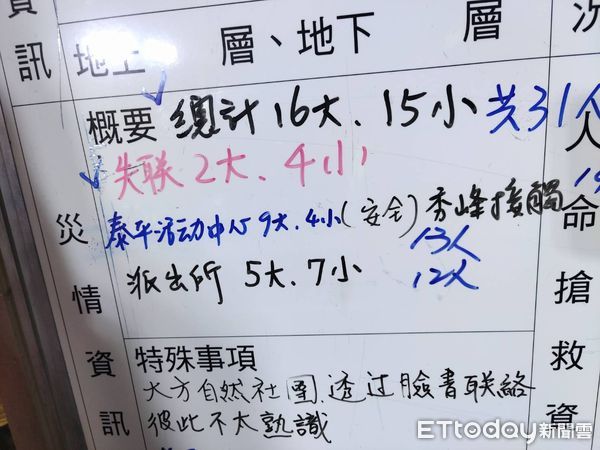 資訊
地上 層、地下 層
次
概要 總計16大.15小 共31人
失联2大.4小
泰平活动中心9大.4小(安全)秀峰接觸
13人
派出所 5大.7小 12人
災情資訊
人命搶救資
特殊事項
大方自然社團.透过臉書联絡
彼此不太熟識
ETtoday新聞雲